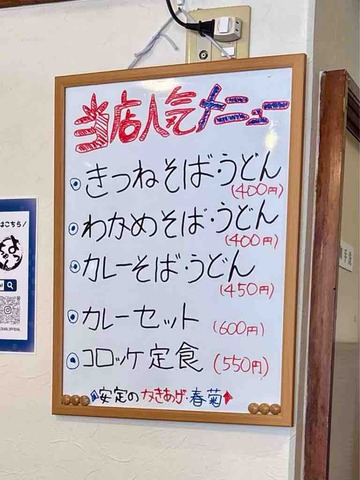 当店人気メニュー
◉きつねそば・うどん
(400円)
◉わかめそば・うどん
(400円)
◉カレーそば・うどん
(450円)
◉カレーセット (600円)
◉コロッケ定食 (550円)
安定のかきあげ・春菊
はこちら!